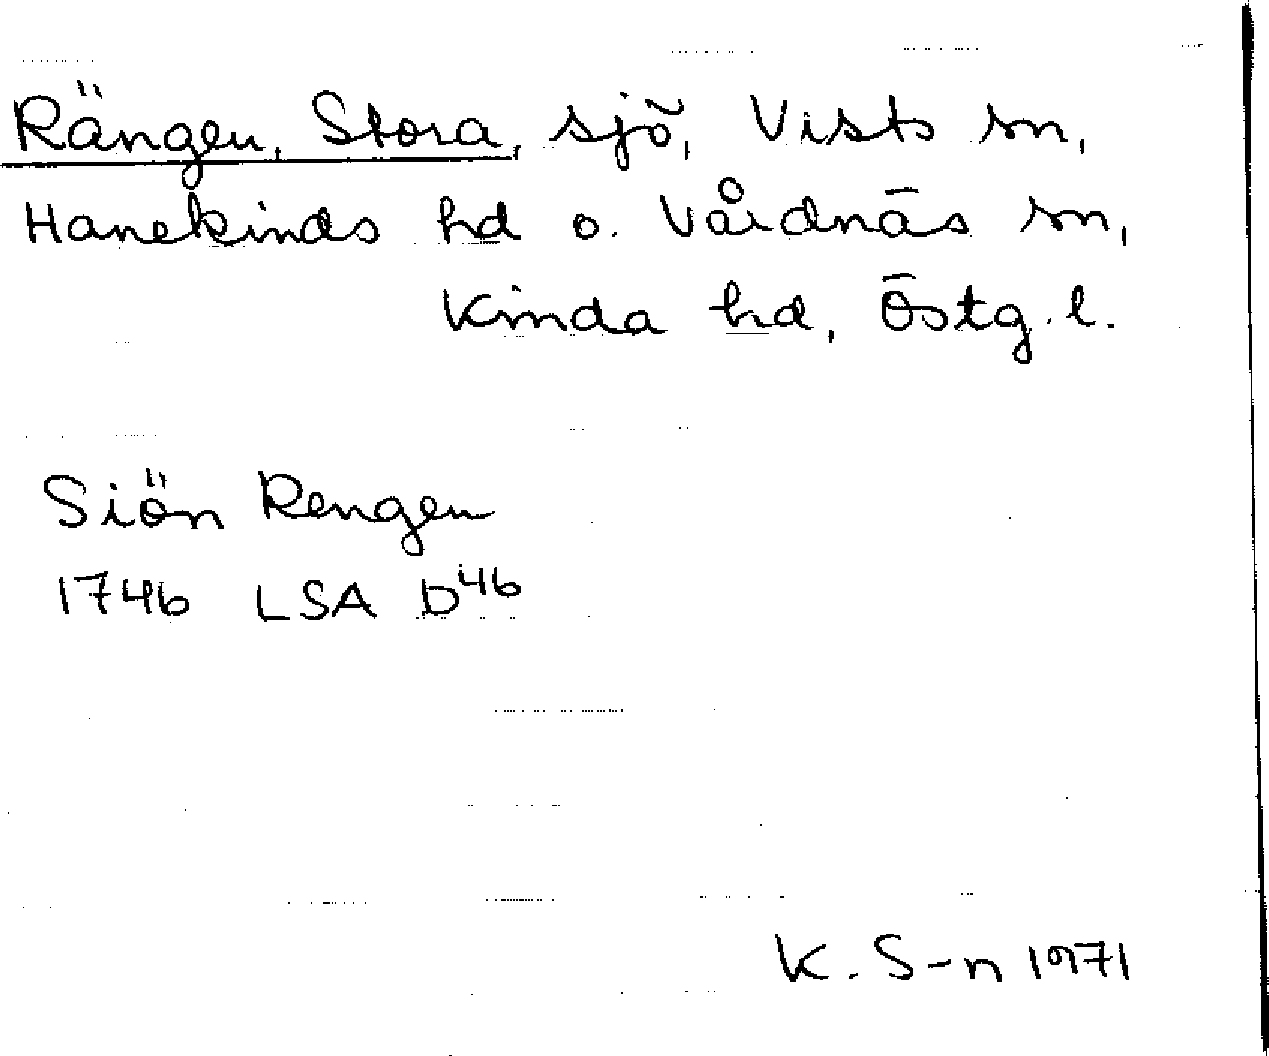 Rängen, Stora, sjö, Vists sn,
Hanekinds hd o. Vårdnäs sn,
Kinda hd, Östg. l.
Siön Rengen
1746 LSA D46
K. S-n 1971